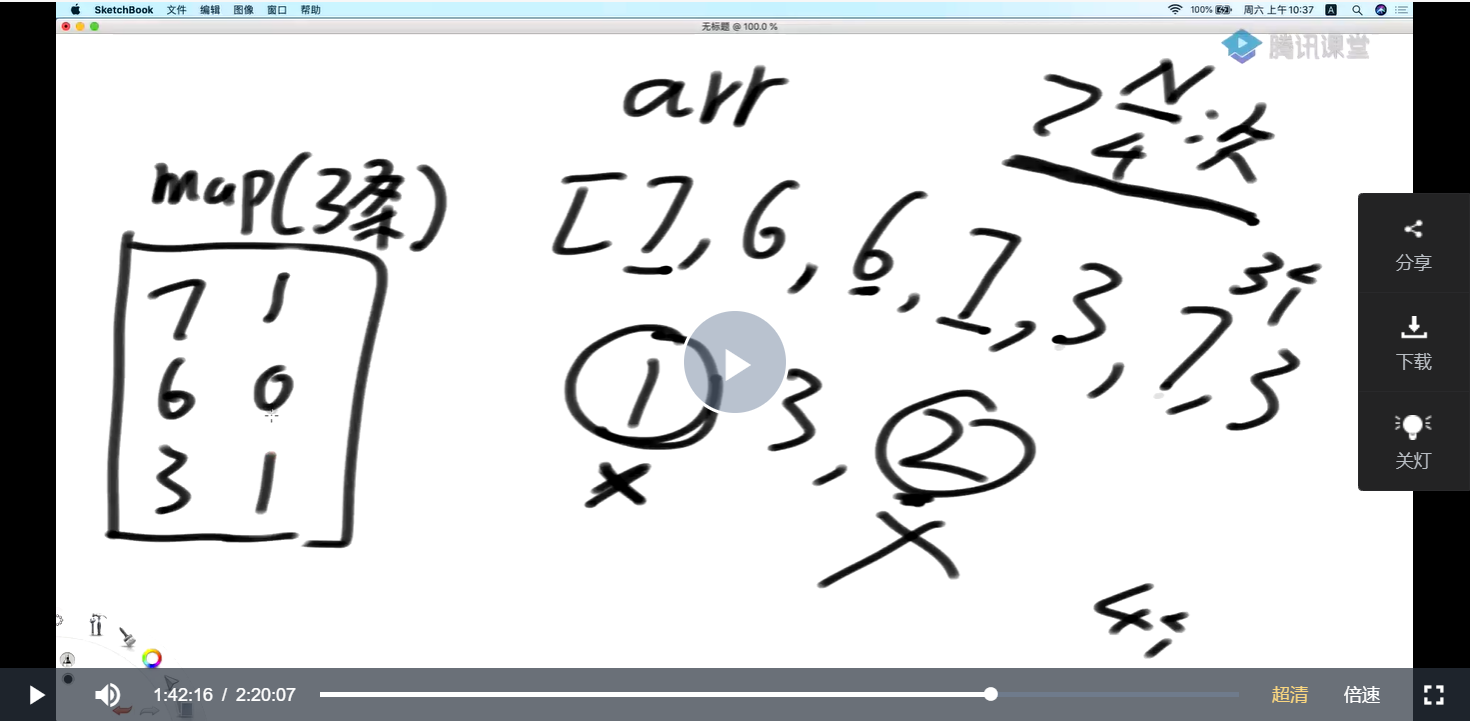 SketchBook 文件 编辑 图像 窗口 帮助 100% 周六 上午10:37 A
无标题 @ 100.0 %
腾讯课堂
arr
> N/4 次
map(3条)
[7, 6, 6, 7, 3, 7, 3
7 1
6 0
3 1
1 3, 2
x
X
分享
下载
关灯
1:42:16 / 2:20:07 超清 倍速